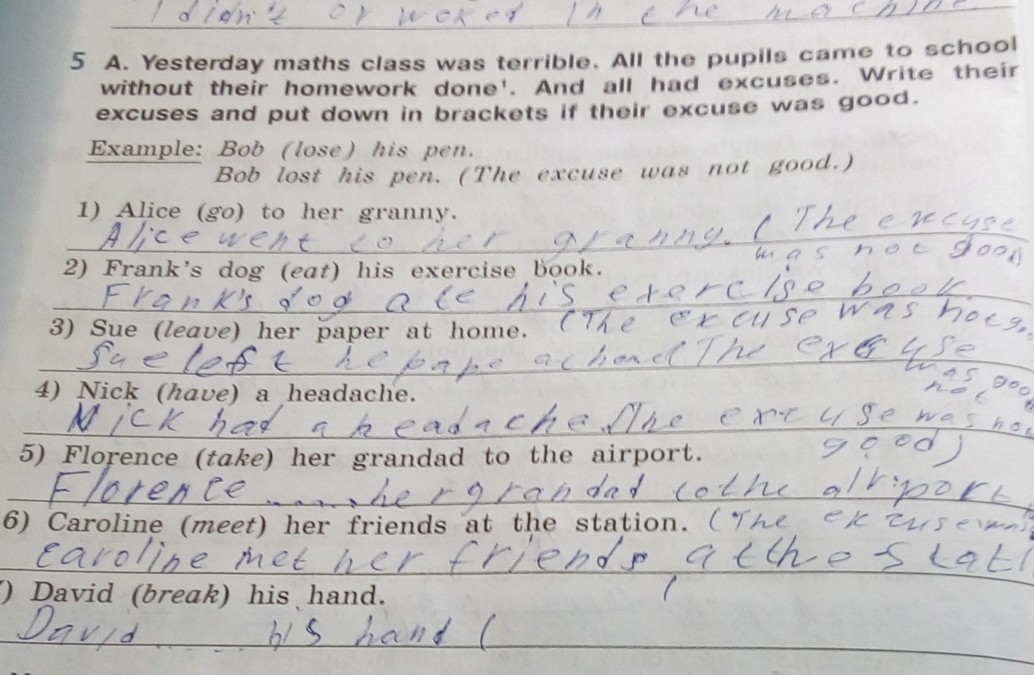 I didn't or woked in the machine
5 A. Yesterday maths class was terrible. All the pupils came to school
without their homework done¹. And all had excuses. Write their
excuses and put down in brackets if their excuse was good.
Example: Bob (lose) his pen.
Bob lost his pen. (The excuse was not good.)
1) Alice (go) to her granny.
Alice went to her granny. (The excuse
was not good
2) Frank's dog (eat) his exercise book.
Frank's dog ate his exercise book
3) Sue (leave) her paper at home. (The excuse was not
Sue left he pape at home (The excuse
was goo
not
4) Nick (have) a headache.
Nick had a headache. (The excuse was
good)
5) Florence (take) her grandad to the airport.
Florence ........ her grandad to the airport
6) Caroline (meet) her friends at the station. (The excuse
Caroline met her friends at the stati
) David (break) his hand. (
David ...... his hand (